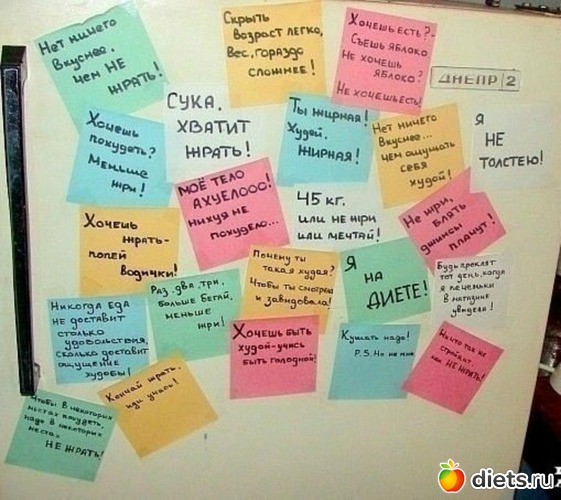 Нет ничего
вкуснее,
чем НЕ
ЖРАТЬ!
Скрыть
возраст легко,
вес, гораздо
сложнее!
Хочешь есть? -
Съешь яблоко
Не хочешь
яблоко?
Не хочешь есть!
ДНЕПР 2
Хочешь
похудеть?
Меньше
жри!
СУКА,
ХВАТИТ
ЖРАТЬ!
Ты жирная!
Худей,
ЖИРНАЯ!
Нет ничего
вкуснее...
чем ощущать
себя
худой!
Я
НЕ
ТОЛСТЕЮ!
Хочешь
жрать-
попей
водички!
МОЁ ТЕЛО
АХУЕЛООО!
нихуя не
похудело...
45 кг.
или не жри
или мечтай!
Не жри,
блять
джинсы
плачут!
Никогда еда
не доставит
столько
удовольствия,
сколько доставит
ощущение
худобы!
Раз, два, три,
больше бегай,
меньше
жри!
Почему ты
такая худая?
Чтобы ты смотрела
и завидовала!
Я
на
ДИЕТЕ!
Будь проклят
тот день, когда
я печеньки
в магазине
увидела!
Чтобы в некоторых
местах похудеть,
надо в некоторых
местах
НЕ ЖРАТЬ!
Кончай жрать,
иди учись!
Хочешь быть
худой-учись
быть голодной!
Кушать надо!
P.S. Но не мне.
Ничто так не
стройнит,
как НЕ ЖРАТЬ!
diets.ru